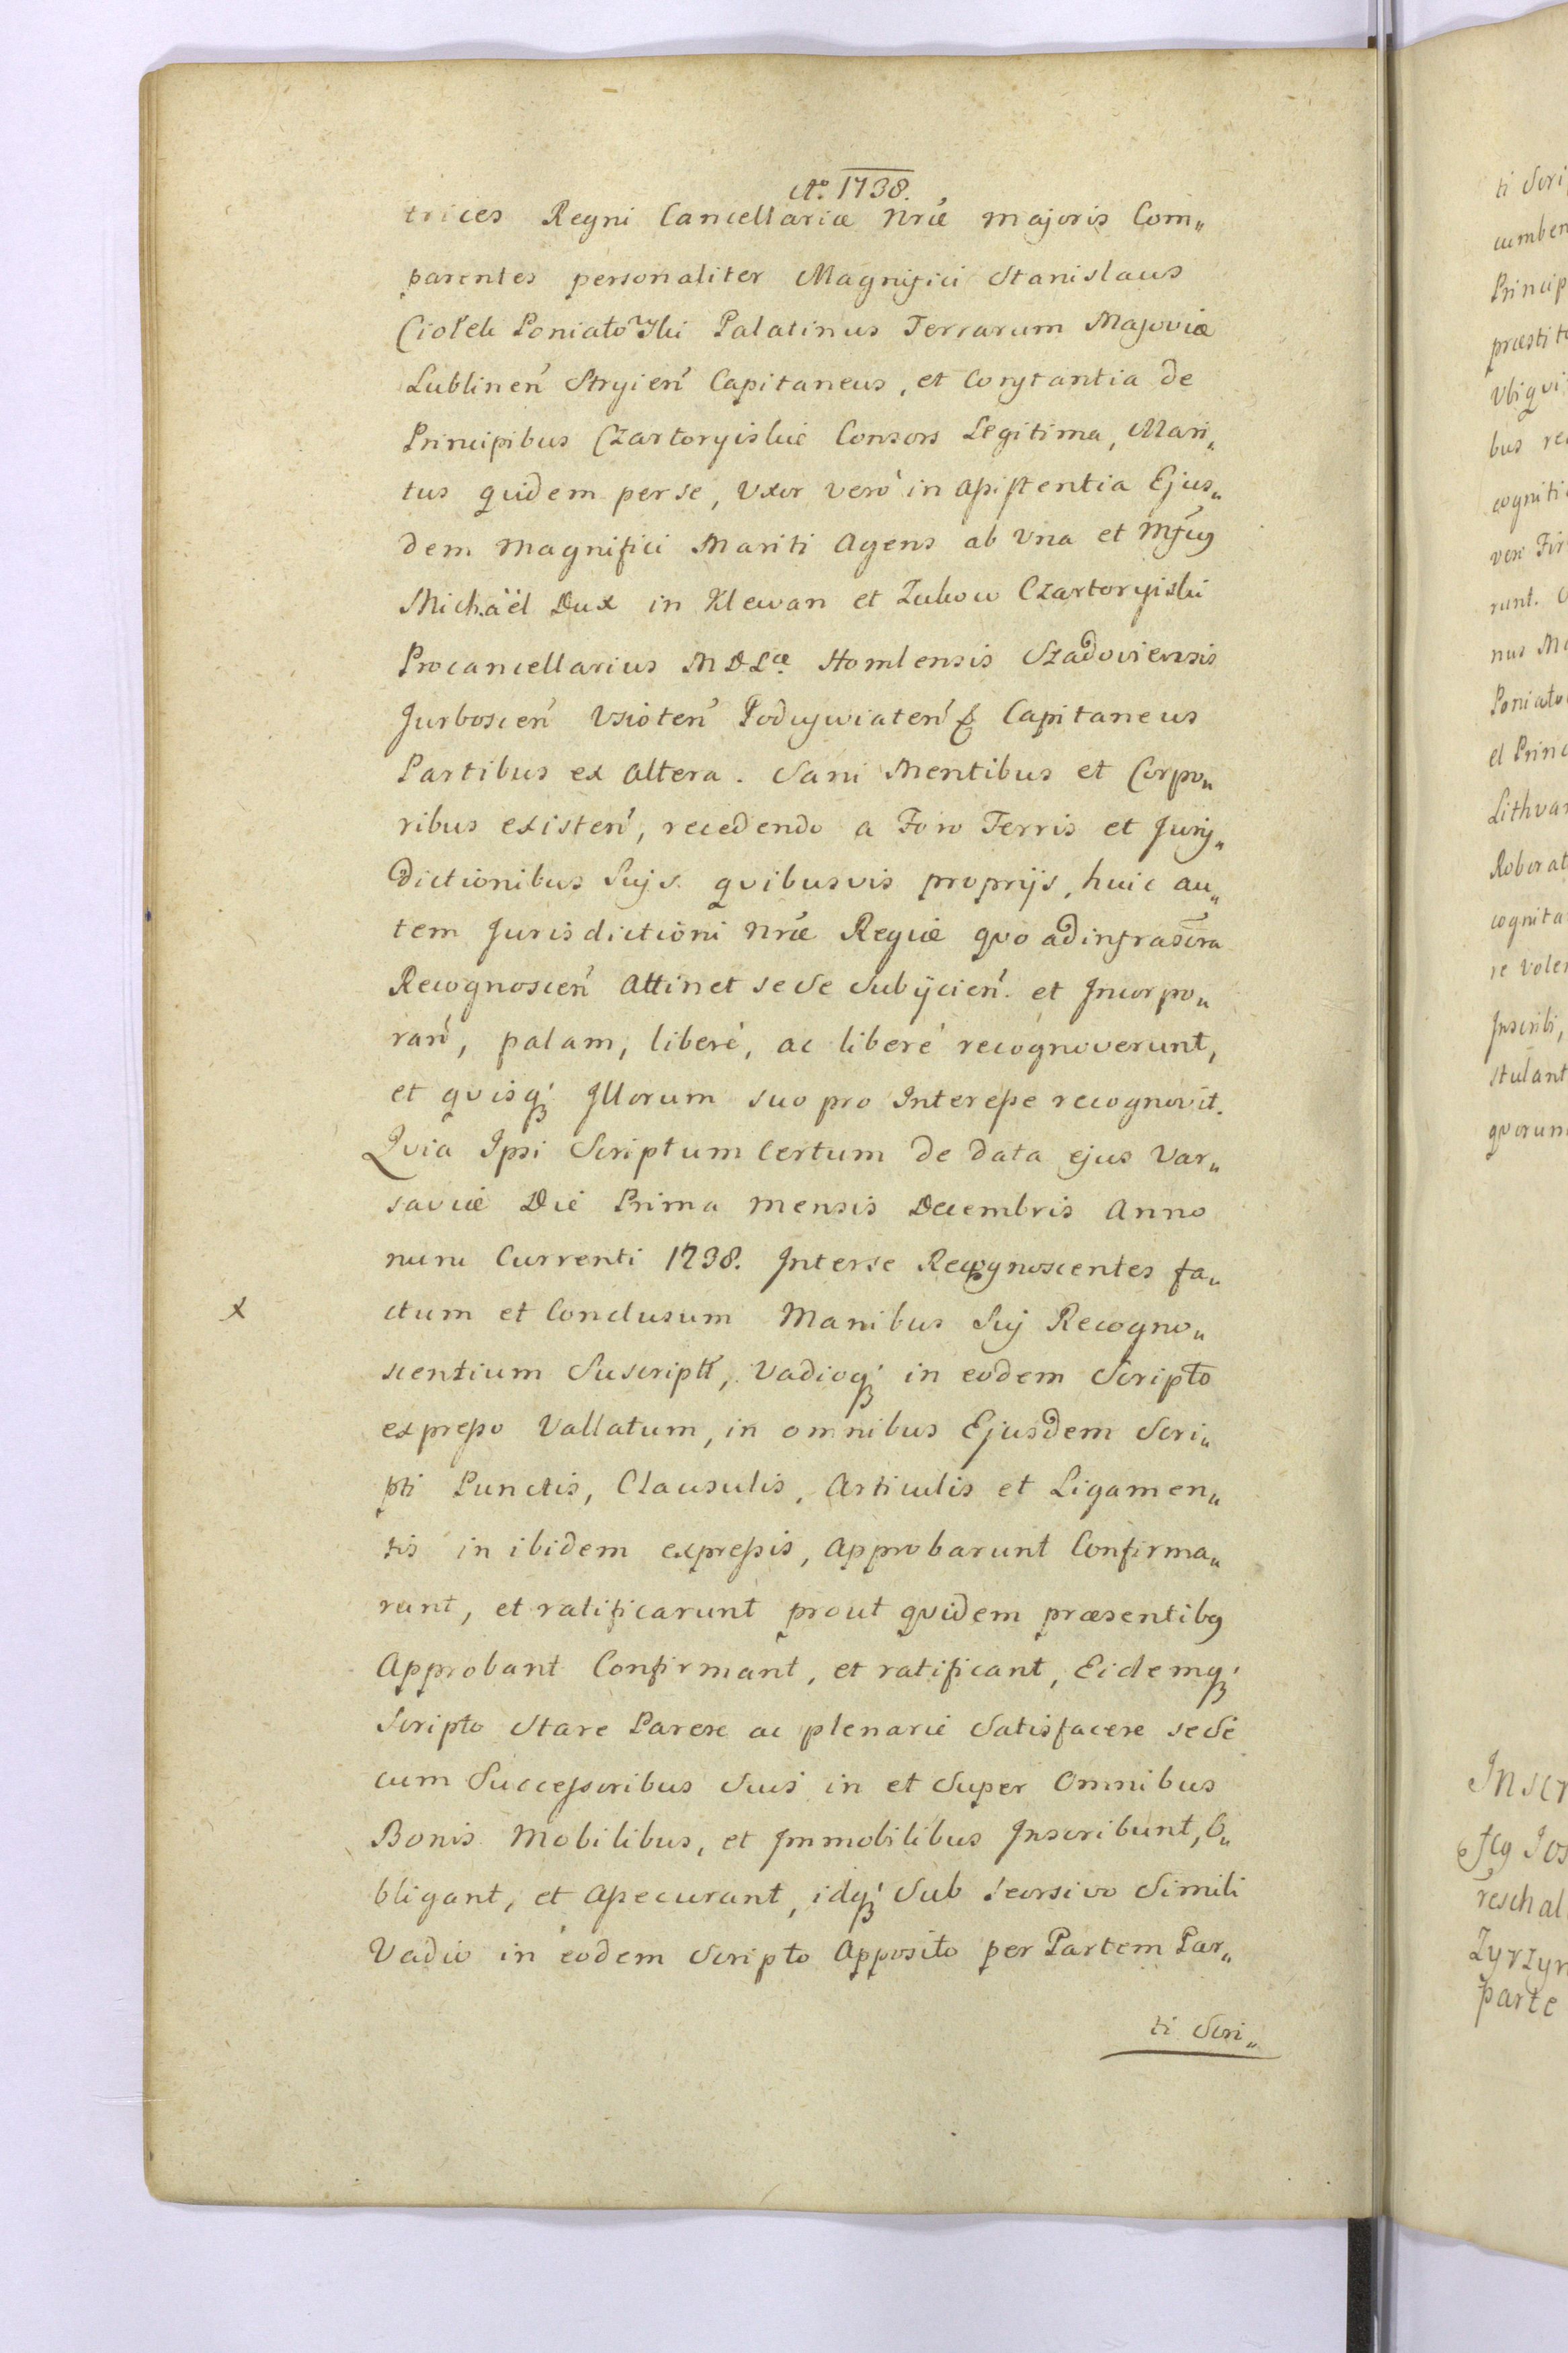 Aо. 1738.
trices Regni Cancellariæ Nræ majoris Com„
parentes personaliter Magnifici Stanislaus
Ciołek Poniatowski Palatinus Terrarum Masoviæ
Lublinen̄ Stryien̄ Capitaneus, et Constantia de
Principibus Czartoryiskie Consors Legitima, Mari„
tus quidem per se, Uxor verò in Assistentia Ejus„
dem Magnifici Mariti Agens ab Una et Mfcus
Michaël Dux in Klewan et Zukow Czartoryiski
Procancellarius M D Læ. Homlensis Szadoviensis
Jurboscen̄ Usioten̄ Poduswiaten̄ & Capitaneus
Partibus ex Altera. Sani Mentibus et Corpo„
ribus existen̄, recedendo a Foro Terris et Juris„
dictionibus Suis quibusvis proprijs, huic au„
tem Jurisdictioni Nræ Regiæ quo ad infrascra
Recognoscen̄ Attinet sese Subijcien̄. et Incorpo„
ran̄, palam, liberè, ac liberè recognoverunt,
et quisq; Illorum suo pro Interesse recognovit.
Quia Ipsi Scriptum Certum de data ejus Var„
saviæ Die Prima mensis Decembris Anno
nunc Currenti 1738. Inter se Recognoscentes fa„
x
ctum et Conclusum Manibus Suis Recogno„
scentium Suscript, Vadioq; in eodem Scripto
expresso Vallatum, in omnibus Ejusdem Scri„
pti Punctis, Clausulis, Articulis et Ligamen„
tis in ibidem expressis, Approbarunt Confirma„
runt, et ratificarunt prout quidem præsentibus
Approbant Confirmant, et ratificant, Eidemq;
Scripto Stare Parere ac plenarie Satisfacere sese
cum Successoribus Suis in et Super Omnibus
Bonis Mobilibus, et Immobilibus Inscribunt, O„
bligant, et Assecurant, idq; Sub seorsivo Simili
Vadio in eodem Scripto Apposito per Partem Par„
ti Scri„
ti Scri
cumben
Princip
præstit
Ubiqvi
bus re
cogniti
vero Fir
runt.
nus Ma
Poniato
et Princ
Lithuan
Roborat
cognita
re volen
Inscribi,
stulant
quorum
Inscr
fcus Jos
reschal
Zyrzyn
parte